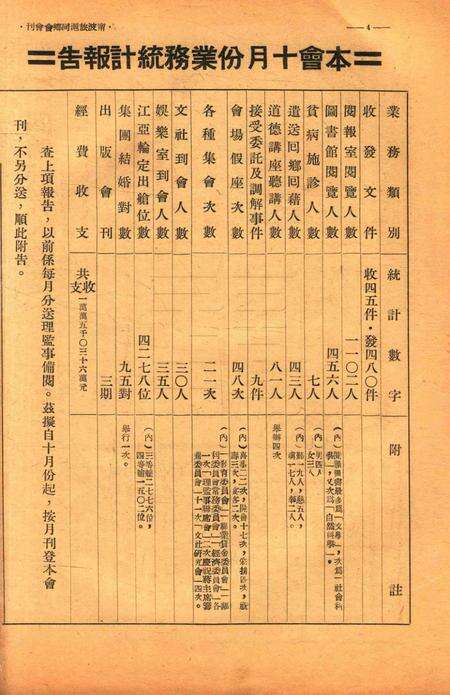 寗波旅滬同鄉會會刊
4
本會十月份業務統計報告
業務類別 統計數字 附註
收發文件 收四五件·發四八〇件
閱報室閱覽人數 一一〇二人
圖書館閱覽人數 四五六人
貧病施診人數 七人
遣送囘鄉囘藉人數 四三人
道德講座聽講人數 八一人 舉辦四次
接受委託及調解事件 九件
會場假座次數 四八次
各種集會次數 二一次
文社到會人數 三〇人
娛樂室到會人數 三五人
江亞輪定出艙位數 四二七八位 (內)三等艙二七七六位,四等艙一五〇二位。
集團結婚對數 九五對 舉行一次。
出版會刊 三期
經費收支 共收支一萬萬五千〇三十六萬元
查上項報告,以前係每月分送理監事備閱。茲擬自十月份起,按月刊登本會
刊,不另分送,順此附告。